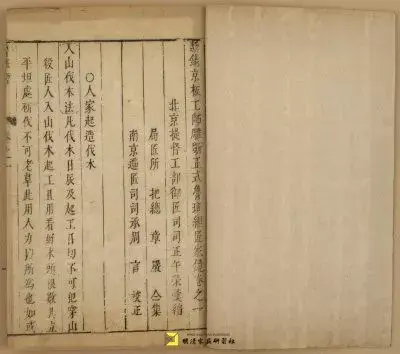 新鐫京板工師雕斵正式魯班經匠家鏡卷之一
北京提督工部御匠司司正午榮彙編
局匠所把總章嚴仝集
南京遞匠司司承周言校正
○人家起造伐木
入山伐木法凡伐木日辰及起工日切不可犯穿山
殺匠人入山伐木起工且用看好木頭根數具立
平坦處斫伐不可老草此用人力以所爲也如或
明清家具研習社